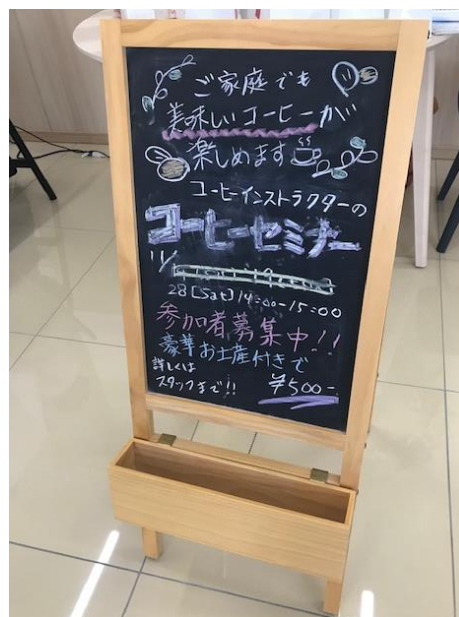 ご家庭でも
美味しいコーヒーが
楽しめます
コーヒーインストラクターの
コーヒーセミナー
11/
28[Sat]14:00-15:00
参加者募集中!!
豪華お土産付きで
詳しくは
スタッフまで!!
¥500-